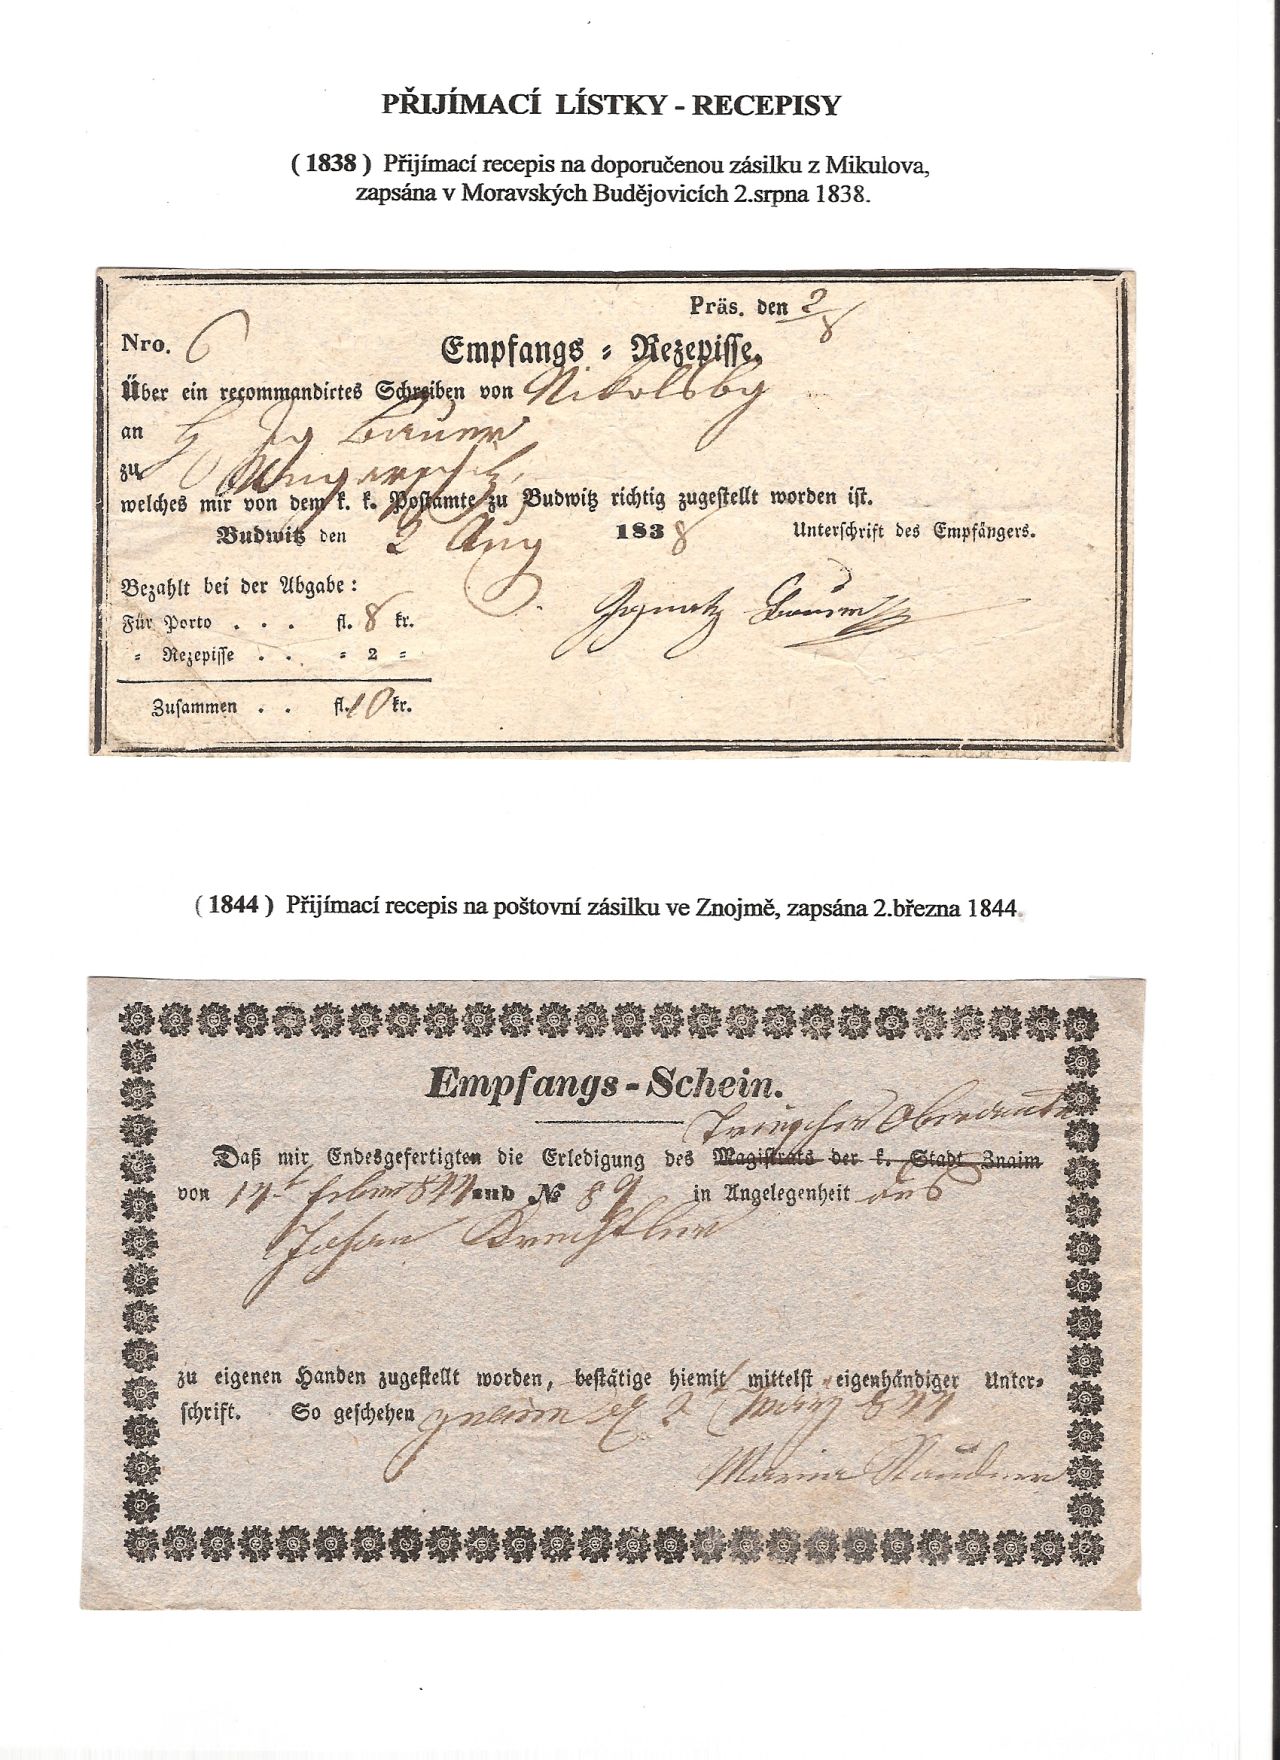 PŘIJÍMACÍ LÍSTKY - RECEPISY
( 1838 ) Přijímací recepis na doporučenou zásilku z Mikulova,
zapsána v Moravských Budějovicích 2.srpna 1838.
Präs. den 2/8
Nro. 6
Empfangs = Rezepisse.
Über ein recommandirtes Schreiben von Nikolsbg
an Bauer
zu
welches mir von dem k. k. Postamte zu Budwitz richtig zugestellt worden ist.
Budwitz den 2 Aug 1838 Unterschrift des Empfängers.
Bezahlt bei der Abgabe:
Ignatz Bauer
Für Porto . . . fl. 8 kr.
= Rezepisse . . = 2 =
Zusammen . . fl. 10 kr.
( 1844 ) Přijímací recepis na poštovní zásilku ve Znojmě, zapsána 2.března 1844.
Empfangs - Schein.
Daß mir Endesgefertigten die Erledigung des Magistrats der k. Stadt Znaim
von 14t 844 und № 89 in Angelegenheit aus
Johan
zu eigenen Handen zugestellt worden, bestätige hiemit mittelst eigenhändiger Unter=
schrift. So geschehen Znaim 2t März 844
Maria